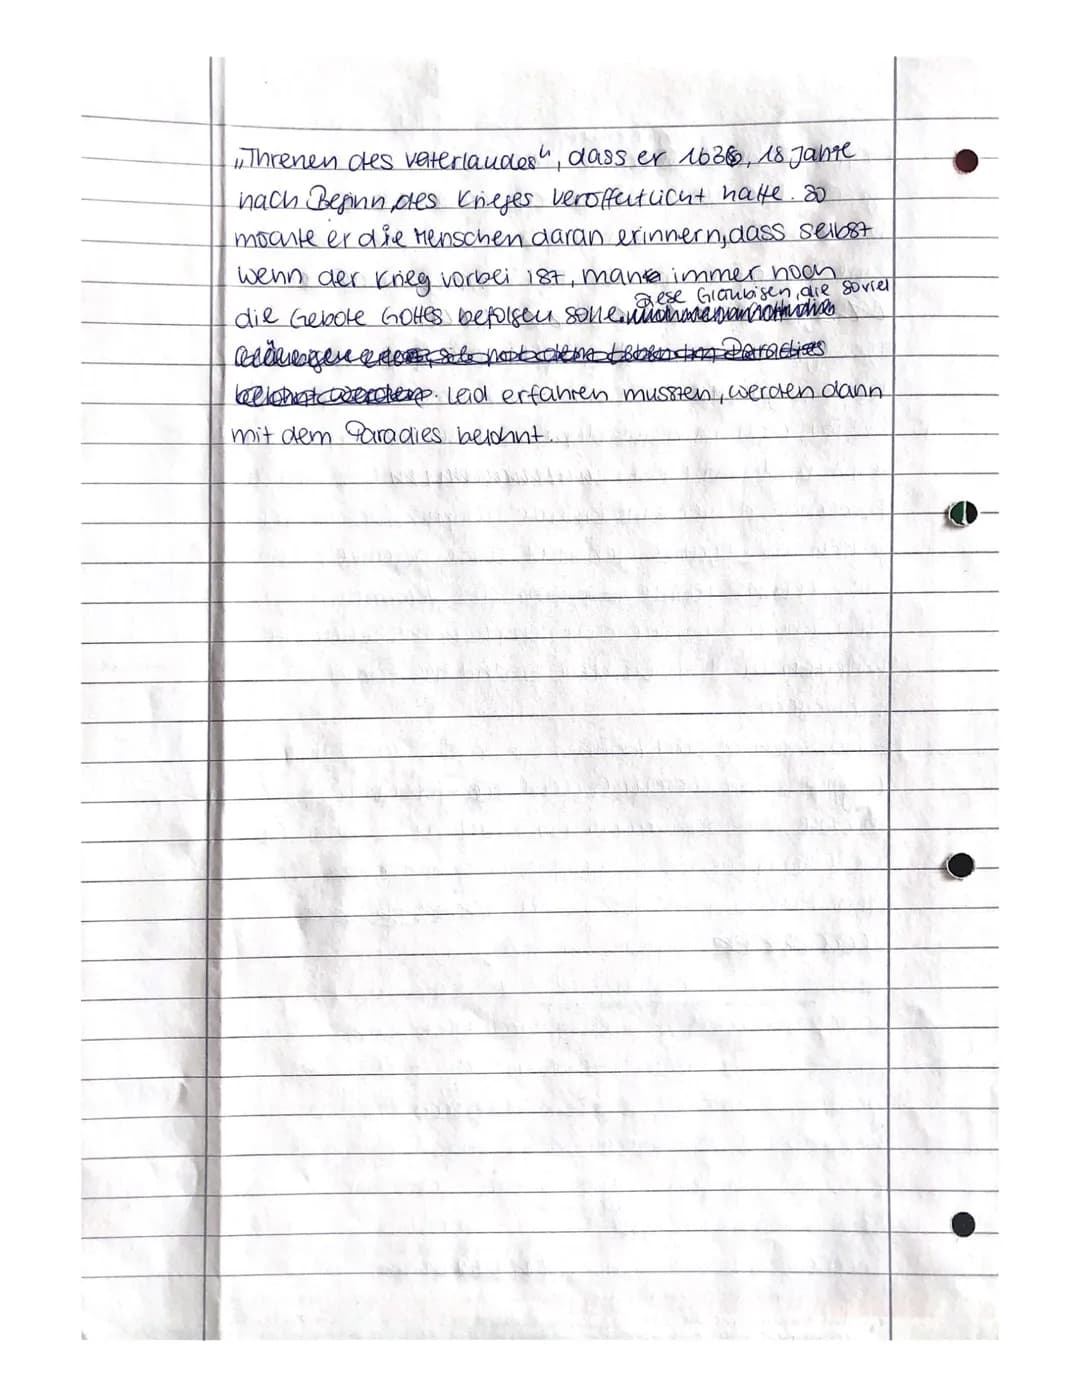 „Threnen des Vaterlandes“, dass er 1636, 18 Jahre
nach Beginn des Krieges veröffentlicht hatte. So
möchte er die Menschen daran erinnern, dass selbst
wenn der Krieg vorbei ist, man immer noch
diese Gläubigen, die soviel
die Gebote Gottes befolgen solle.
Paradies
belohnt werden. Leid erfahren mussten, werden dann
mit dem Paradies belohnt.